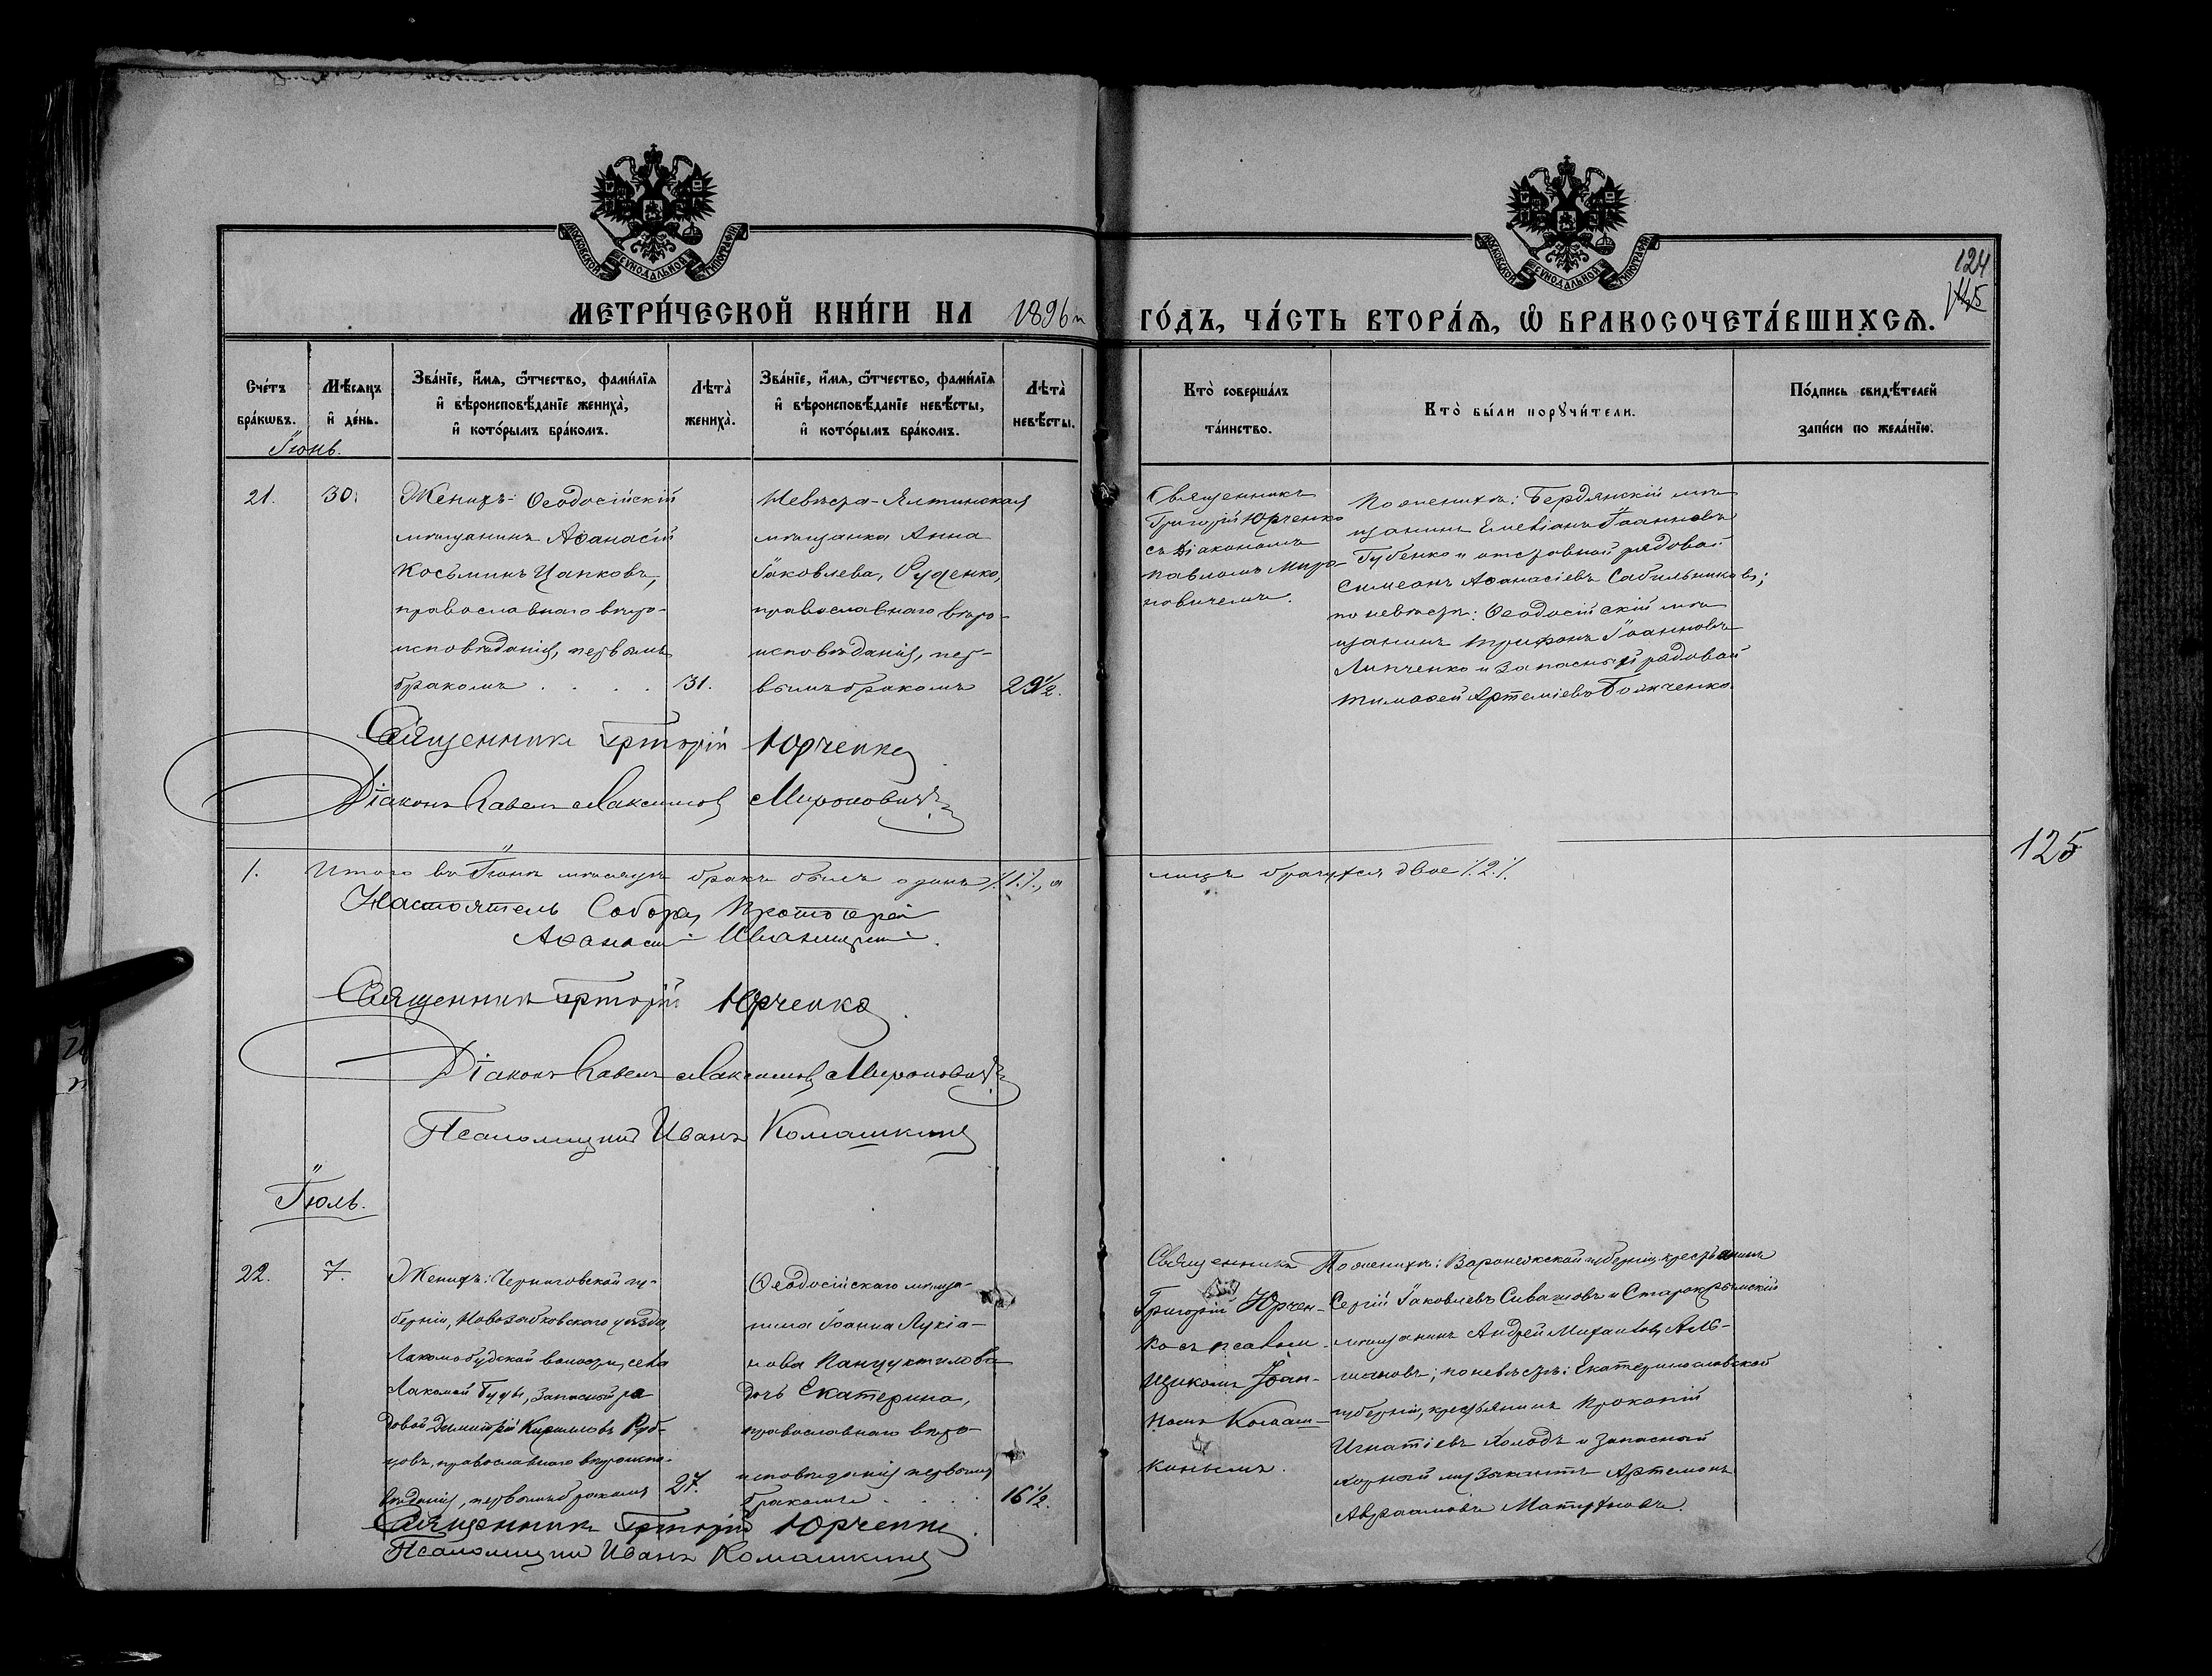 МОСКОВСКОЙ СУНОДАЛЬНОЙ ТИПОГРАФІИ
МОСКОВСКОЙ СУНОДАЛЬНОЙ ТИПОГРАФІИ
124
МЕТРИ́ЧЕСКОЙ КНИ́ГИ НА 1896 й ГО́ДЪ, ЧА́СТЬ ВТОРА́Я, Ѡ БРАКОСОЧЕТА́ВШИХСѦ.
Сче́тъ бра́кѡвъ.
Мѣ́сѧцъ и де́нь.
Зва́нїе, и́мѧ, ѻ́тчество, фами́лїѧ и вѣроисповѣ́данїе жениха̀, и кото́рымъ бра́комъ.
Лѣта̀ жениха̀.
Зва́нїе, и́мѧ, ѻ́тчество, фами́лїѧ и вѣроисповѣ́данїе невѣ́сты, и кото́рымъ бра́комъ.
Лѣта̀ невѣ́сты.
Кто̀ соверша́лъ та́инство.
Кто̀ бы́ли порꙋчи́тели.
По́дпись свидѣ́телей за́писи по жела́нїю.
Іюнь.
21.
30.
Женихъ: Ѳеодосійскій
мѣщанинъ Аѳанасій
Косьминъ Цапковъ,
православнаго вѣро-
исповѣданія, первымъ
бракомъ . . . .
31.
Невѣста - Ялтинская
мѣщанка Анна
Іаковлева, Руденко,
православнаго вѣро-
исповѣданія, пер-
вымъ бракомъ
29½.
Священникъ
Григорій Юрченко
съ діакономъ
Павломъ Миро-
новичемъ.
По женихѣ: Бердянскій мѣ-
щанинъ Іоанновъ
Губенко и отставной рядовой
Симеонъ Аѳанасіевъ Сабильниковъ;
по невѣстѣ: Ѳеодосійскій мѣ-
щанинъ Трифонъ Іоанновъ
Липченко и запасный рядовой
Тимоѳей Артеміевъ
Священникъ Григорій Юрченко
Діаконъ Павелъ Максимовъ Мироновичъ
125
1. Итого въ Іюнѣ мѣсяцѣ бракъ былъ одинъ /.1./, а лицъ брачихся двое /.2./.
Настоятель Собора, Протоіерей
Аѳанасій
Священникъ Григорій Юрченко
Діаконъ Павелъ Максимовъ Мироновичъ
Псаломщикъ Иванъ Комашкинъ
Іюль.
22.
7.
Женихъ: Черниговской гу-
берніи, Новозыбковскаго уѣзда,
Лакомобудской волости, села
Лакомой Буды, запасный ря-
довой Димитрій Кирилловъ Руб-
цовъ, православнаго вѣроиспо-
вѣданія, первымъ бракомъ
27.
Ѳеодосійскаго мѣща-
нина Іоанна Лукіа-
нова
дочь Екатерина,
православнаго вѣро-
исповѣданія первымъ
бракомъ . . . .
16½.
Священникъ
Григорій Юрчен-
ко съ псалом-
щикомъ Іоан-
номъ Комаш-
кинымъ.
По женихѣ: Воронежской губерніи, крестьянинъ
Сергій Іаковлевъ Сивашовъ и Старокрымскій
мѣщанинъ Андрей Михаиловъ
по невѣстѣ: Екатеринославской
губерніи, крестьянинъ Прокопій
Игнатіевъ Холодъ и запасный
хорный музыкантъ Артемонъ
Авраамовъ
Священникъ Григорій Юрченко
Псаломщикъ Иванъ Комашкинъ